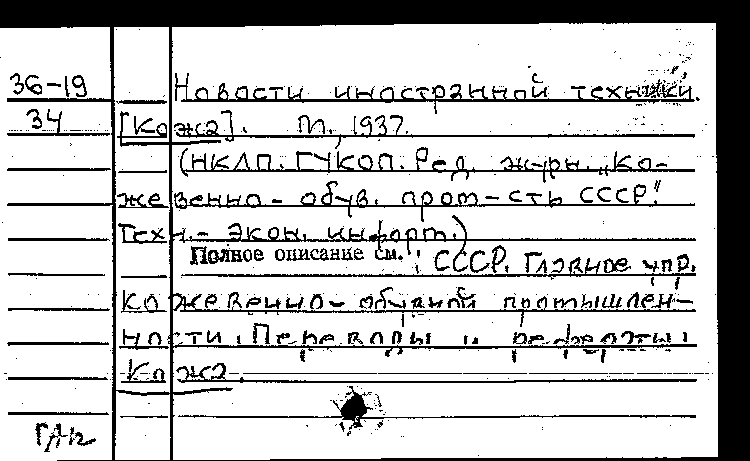 36-19 Новости иностранной техники.
34 [Кожа]. М., 1937.
(НКЛП. ГУКОП. Ред. журн. „Ко-
жевенно-обув. пром-сть СССР."
Техн.-экон. информ.)
Полное описание см.: СССР. Главное упр.
кожевенно-обувной промышлен-
ности. Переводы и рефераты.
Кожа.